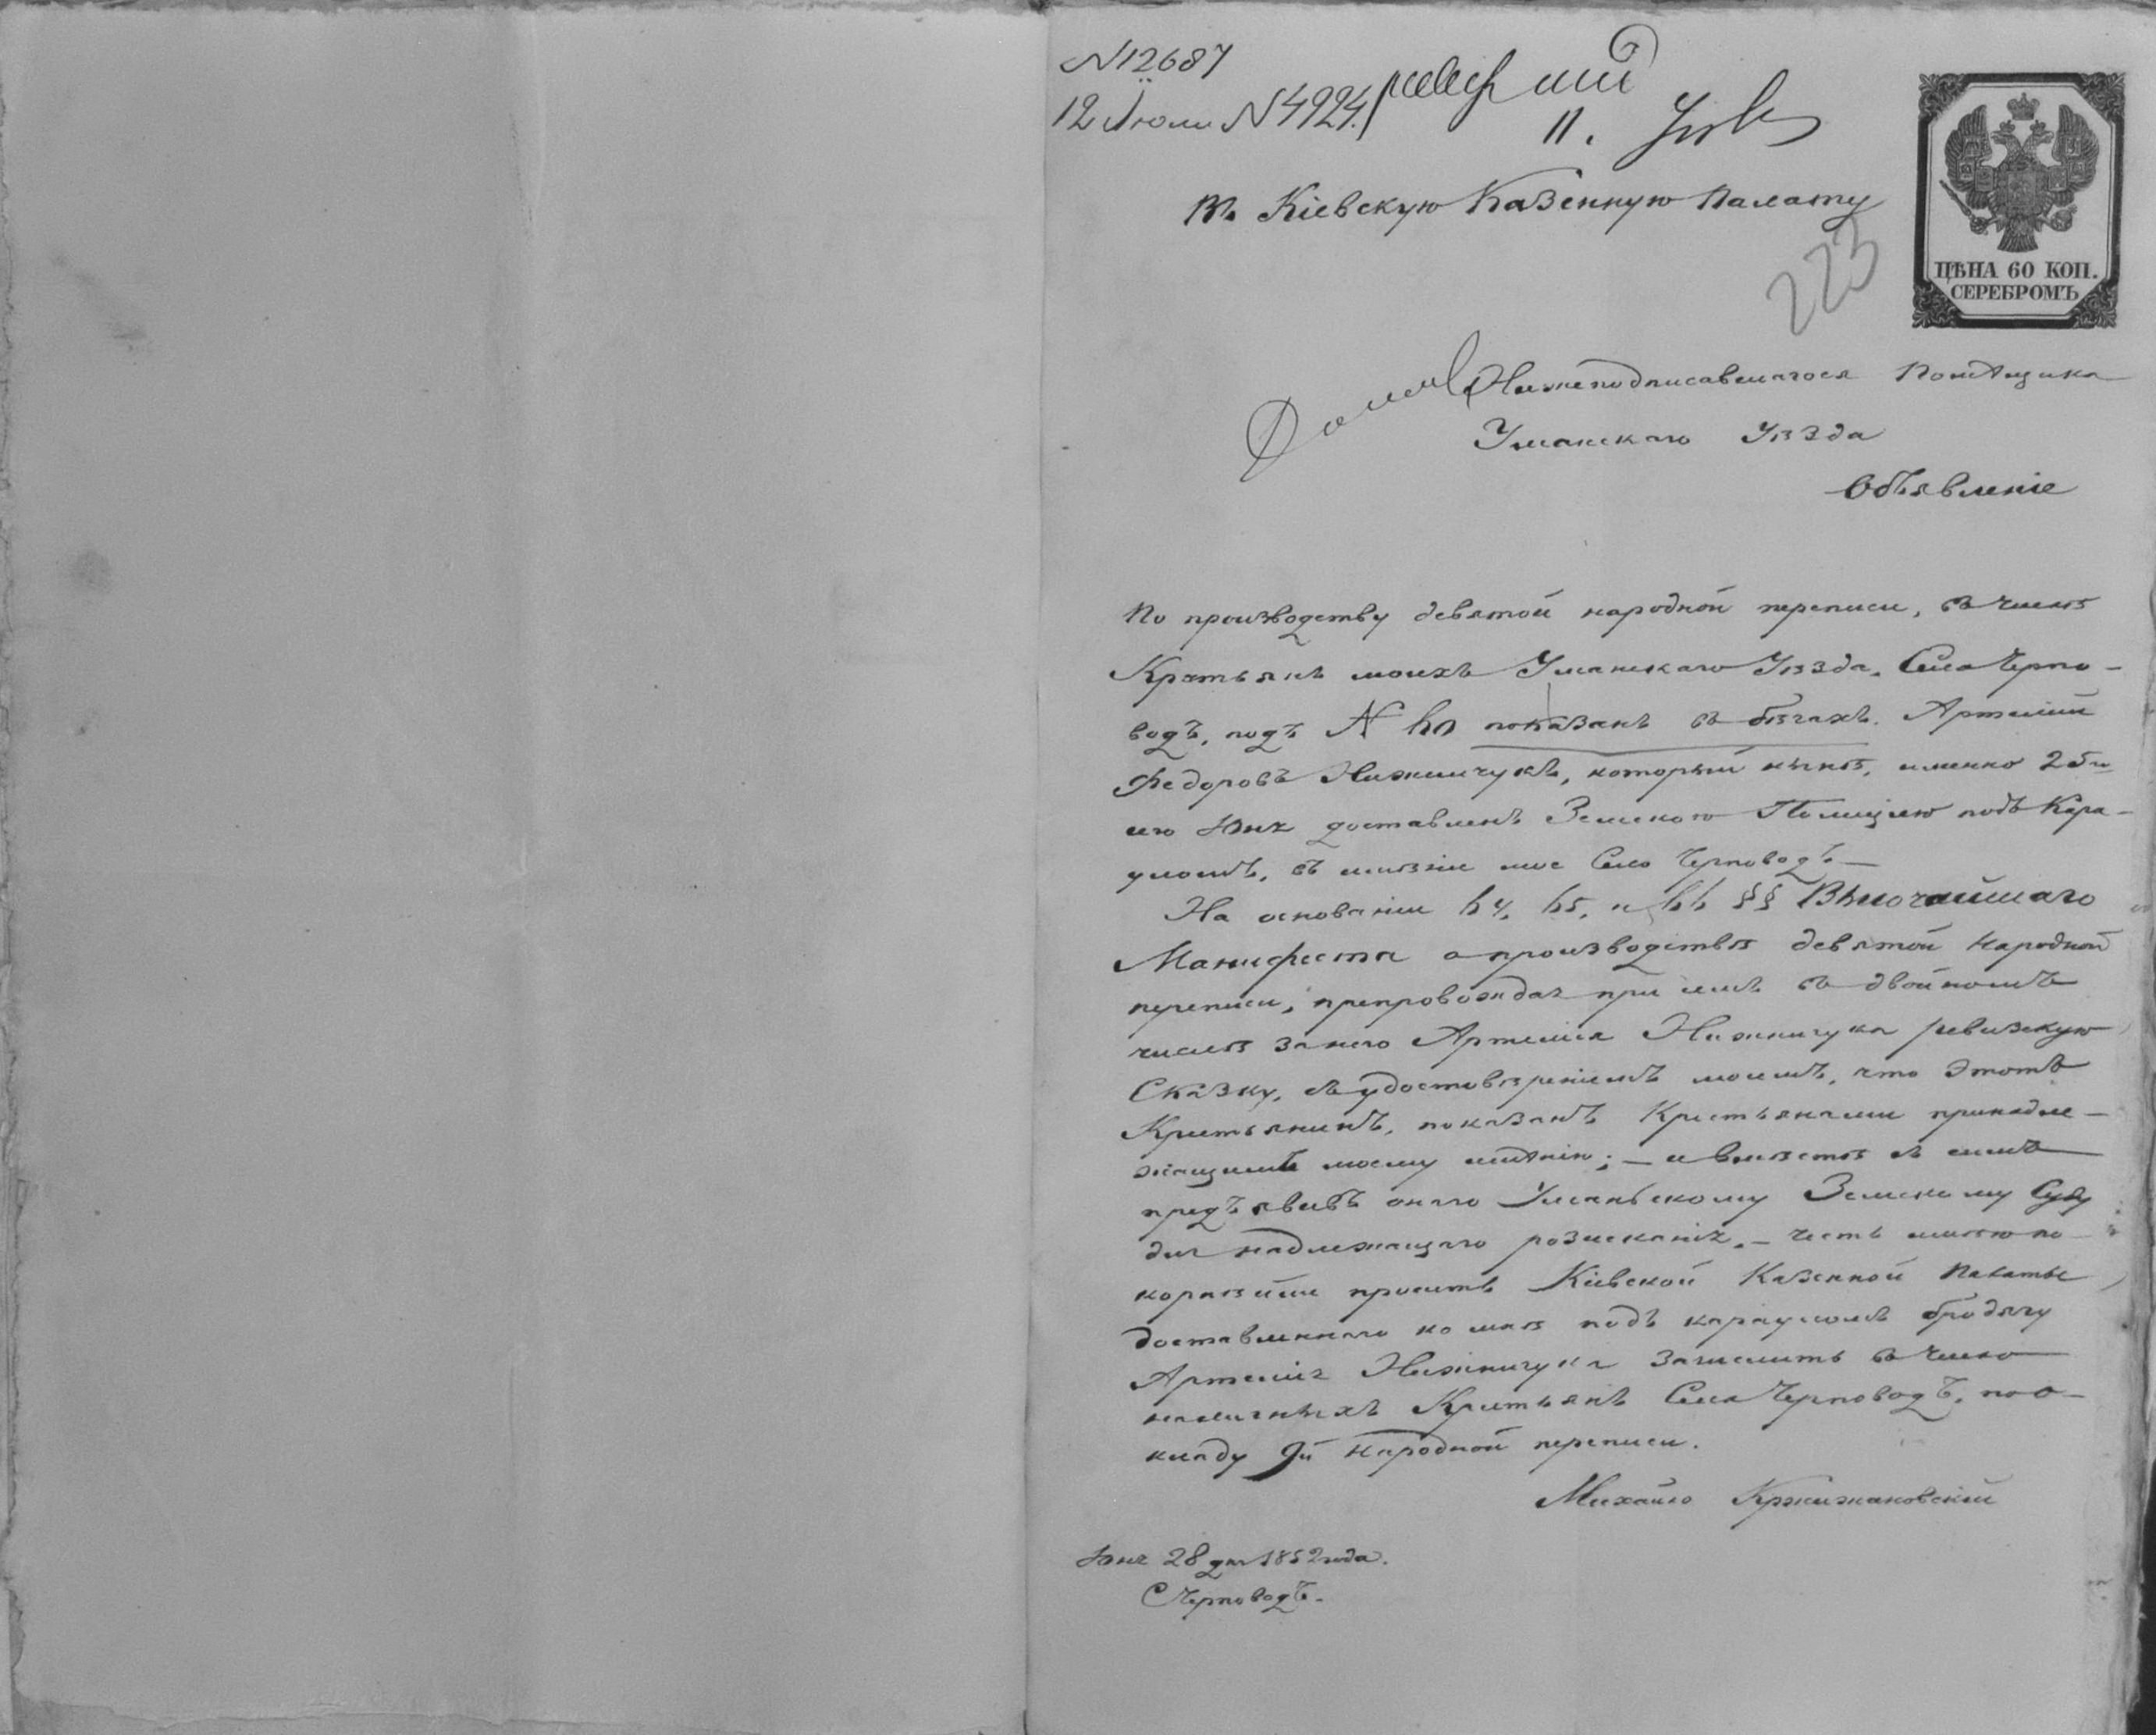 N 12687
12 Июля N 4924.
11.
223
ЦѢНА 60 КОП.
СЕРЕБРОМЪ
Въ Кіевскую Казенную Палату
Нижеподписавшагося Помѣщика
Уманскаго Уѣзда
Объявленіе
По производству девятой народной переписи, въ числѣ
Крѣстьянъ моихъ Уманскаго Уѣзда, Села Черпо-
водъ, подъ N показанъ въ бѣгахъ. Артемій
Федоровъ Нижничукъ, который нынѣ, именно 25го
сего Юня доставленъ Земскою Полиціею подъ Кара-
уломъ, въ имѣніе мое Село Черповодъ.—
На основаніи 64, 65, и 66 §§ Высочайшаго
Манифеста о производствѣ девятой Народной
переписи, препровождая при семъ въ двойномъ
числѣ за него Артемія Нижничука ревизскую
Сказку, съ удостовѣреніемъ моимъ, что этотъ
Крестьянинъ, показанъ Крестьянами принадле-
жащимъ моему имѣнію; — и вмѣстѣ съ симъ
предъявивъ онаго Уманьскому Земскому Суду
для надлежащаго розысканія. — честь имѣю по-
корнѣйше просить Кіевской Казенной Палаты
доставленнаго ко мнѣ подъ карауломъ бродягу
Артемія Нижничука зачислить въ число
наличныхъ Крестьянъ Села Черповодъ, по о-
кладу 9й народной переписи.
Михайло Кржижановскій
Юня 28 дня 1852 года.
С Черповодъ.